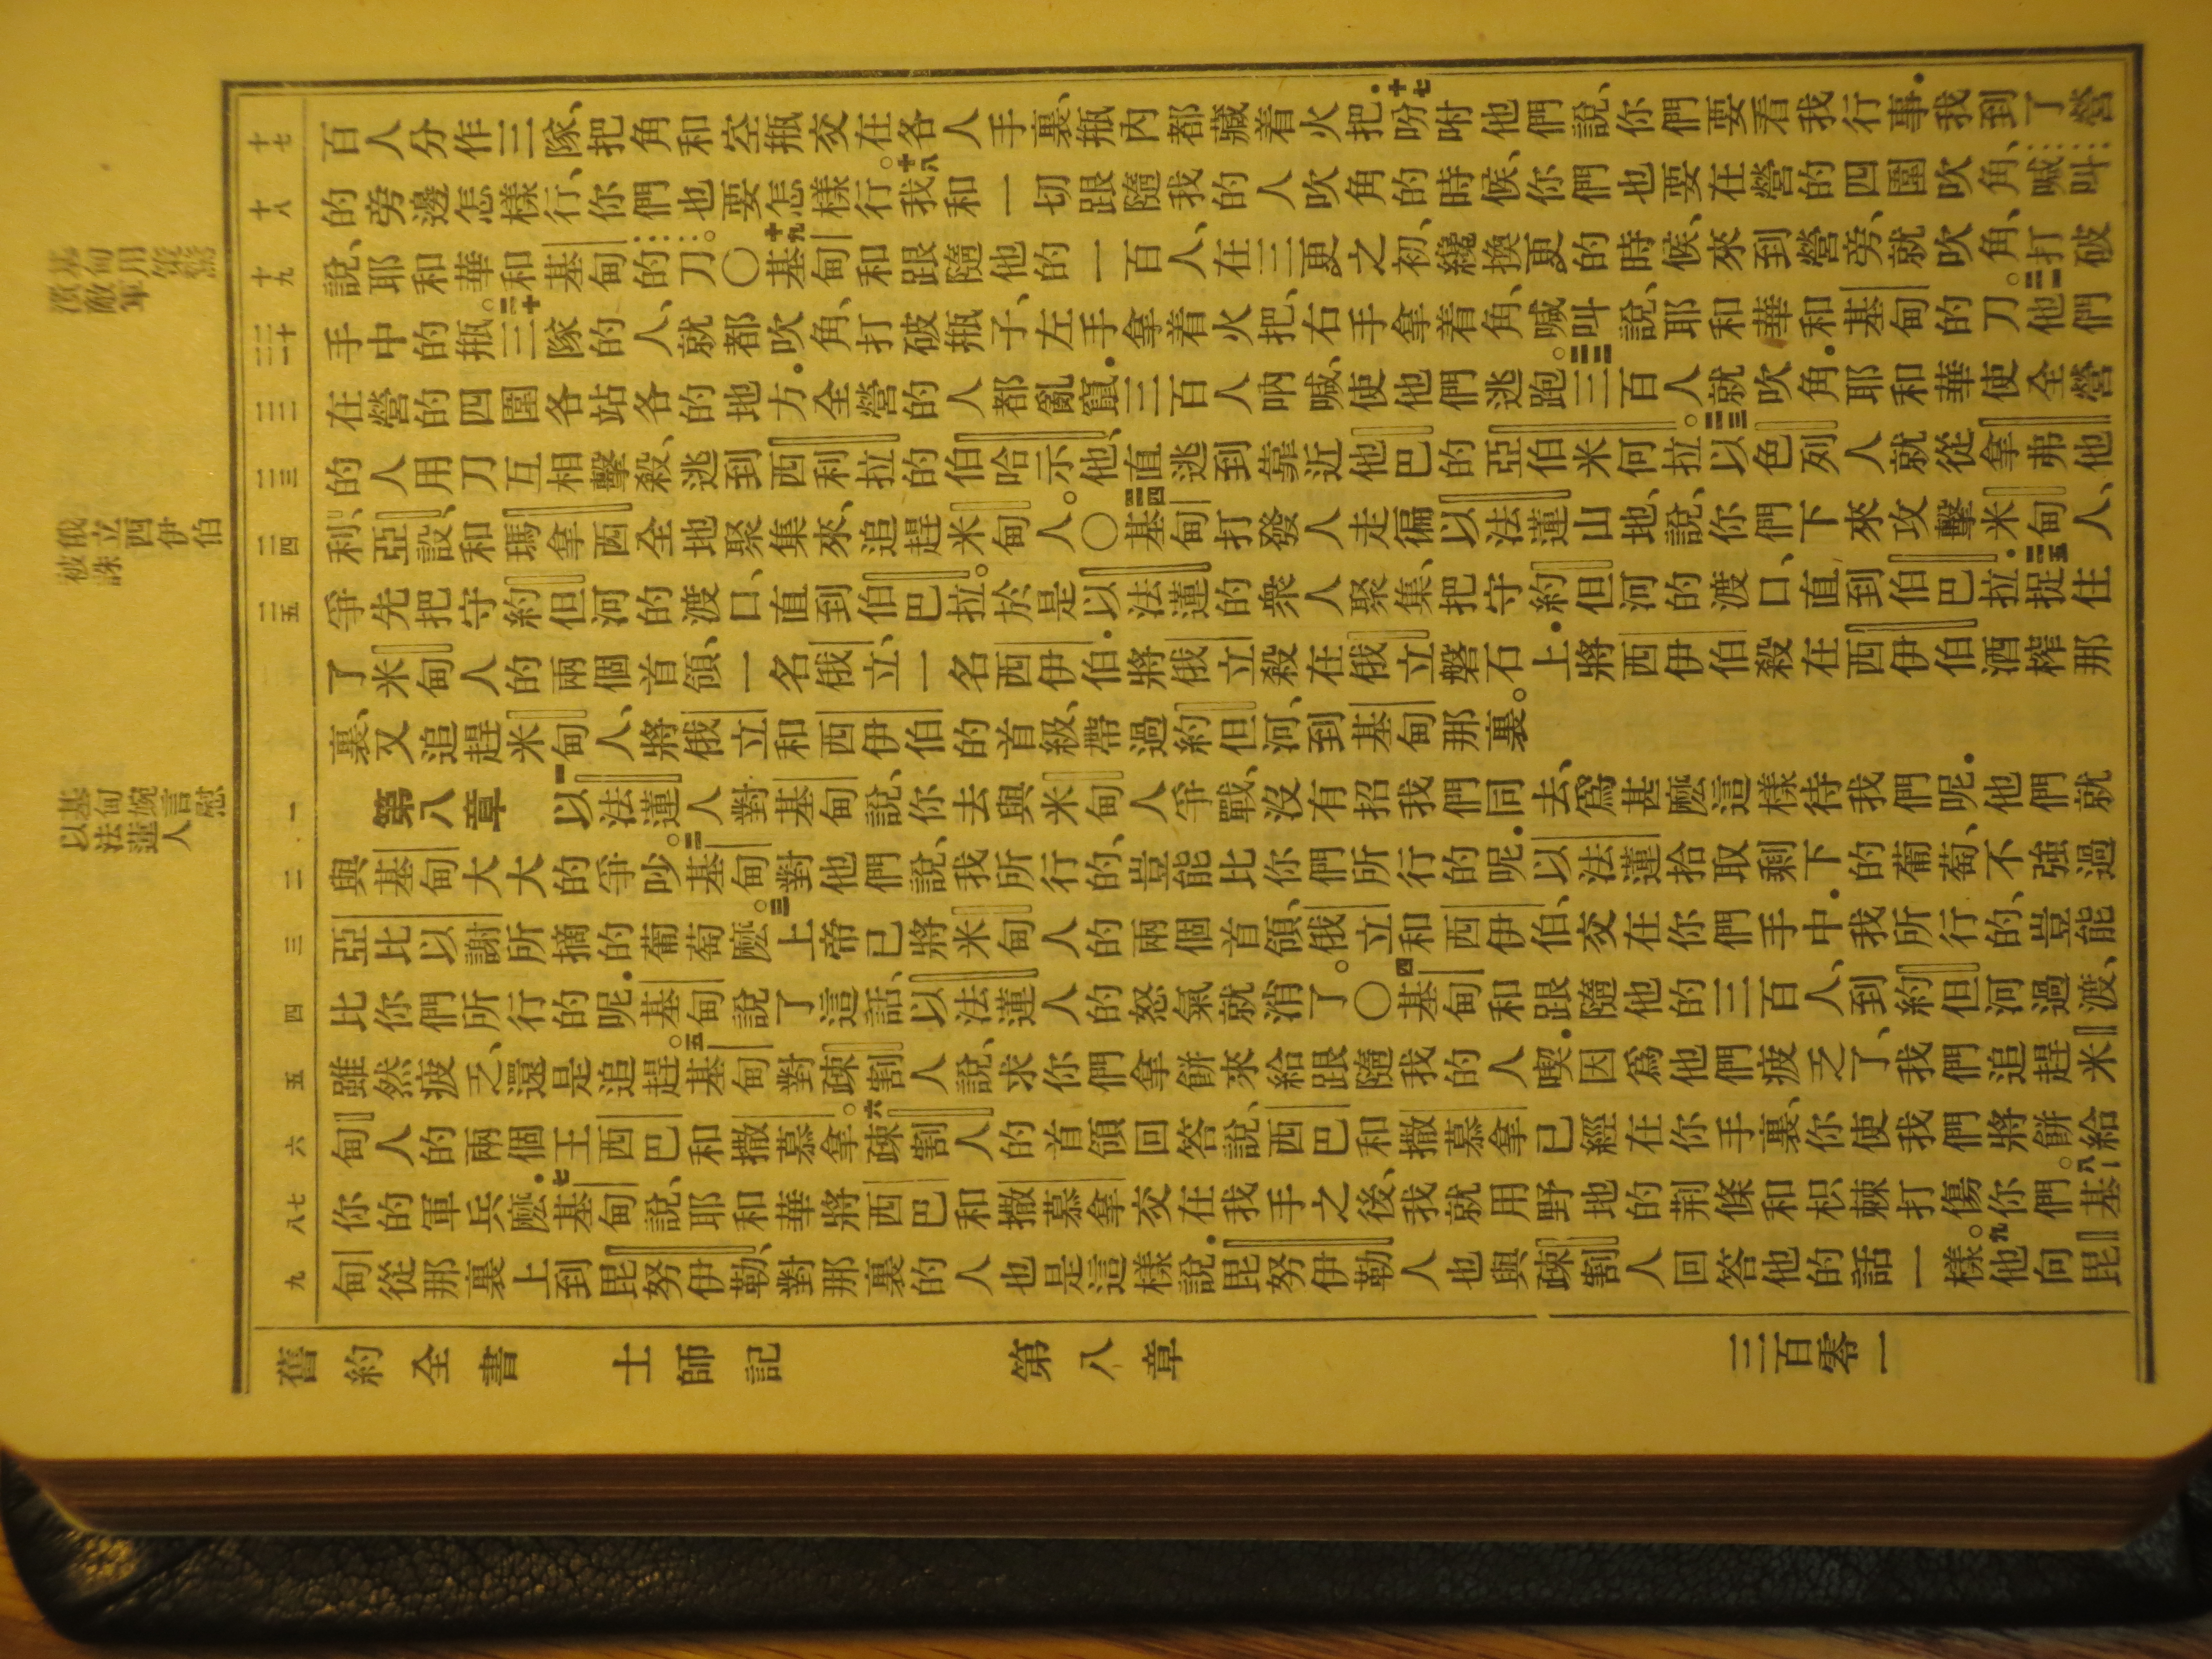 俄立西伊伯
被誅
基甸婉言慰
以法蓮人
十七
十八
十九
二十
二一
二二
二三
二四
二五
一
二
三
四
五
六
七
八
九
百人分作三隊、把角和空瓶交在各人手裏、瓶內都藏着火把.十七吩咐他們說、你們要看我行事.我到了營
的旁邊怎樣行、你們也要怎樣行。十八我和一切跟隨我的人吹角的時候、你們也要在營的四圍吹角、喊叫
說、耶和華和基甸的刀。〇十九基甸和跟隨他的一百人、在三更之初、纔換更的時候、來到營旁、就吹角、打破
手中的瓶。二十三隊的人、就都吹角、打破瓶子、左手拿着火把、右手拿着角、喊叫說、耶和華和基甸的刀。二一他們
在營的四圍各站各的地方.全營的人都亂竄.三百人吶喊、使他們逃跑。二二三百人就吹角.耶和華使全營
的人用刀互相擊殺、逃到西利拉的伯哈示他、直逃到靠近他巴的亞伯米何拉。二三以色列人就從拿弗他
利、亞設、和瑪拿西全地聚集來、追趕米甸人。〇二四基甸打發人走徧以法蓮山地、說、你們下來攻擊米甸人、
爭先把守約但河的渡口、直到伯巴拉。於是以法蓮的衆人聚集、把守約但河的渡口、直到伯巴拉.二五捉住
了米甸人的兩個首領、一名俄立、一名西伊伯.將俄立殺在俄立磐石上.將西伊伯殺在西伊伯酒榨那
裏、又追趕米甸人、將俄立和西伊伯的首級、帶過約但河、到基甸那裏。
第八章 一以法蓮人對基甸說、你去與米甸人爭戰、沒有招我們同去、爲甚麼這樣待我們呢.他們就
與基甸大大的爭吵。二基甸對他們說、我所行的、豈能比你們所行的呢.以法蓮拾取剩下的葡萄、不強過
亞比以謝所摘的葡萄麼。三上帝已將米甸人的兩個首領、俄立和西伊伯、交在你們手中.我所行的、豈能
比你們所行的呢.基甸說了這話、以法蓮人的怒氣就消了。〇四基甸和跟隨他的三百人、到約但河過渡、
雖然疲乏、還是追趕。五基甸對疎割人說、求你們拿餅來給跟隨我的人喫.因爲他們疲乏了、我們追趕米
甸人的兩個王西巴和撒慕拿。六疎割人的首領回答說、西巴和撒慕拿已經在你手裏、你使我們將餅給
你的軍兵麼.七基甸說、耶和華將西巴和撒慕拿交在我手之後、我就用野地的荆條和枳棘打傷你們。八基
甸從那裏上到毘努伊勒、對那裏的人也是這樣說.毘努伊勒人也與疎割人回答他的話一樣。九他向毘
舊約全書 士師記 第八章 三百零一